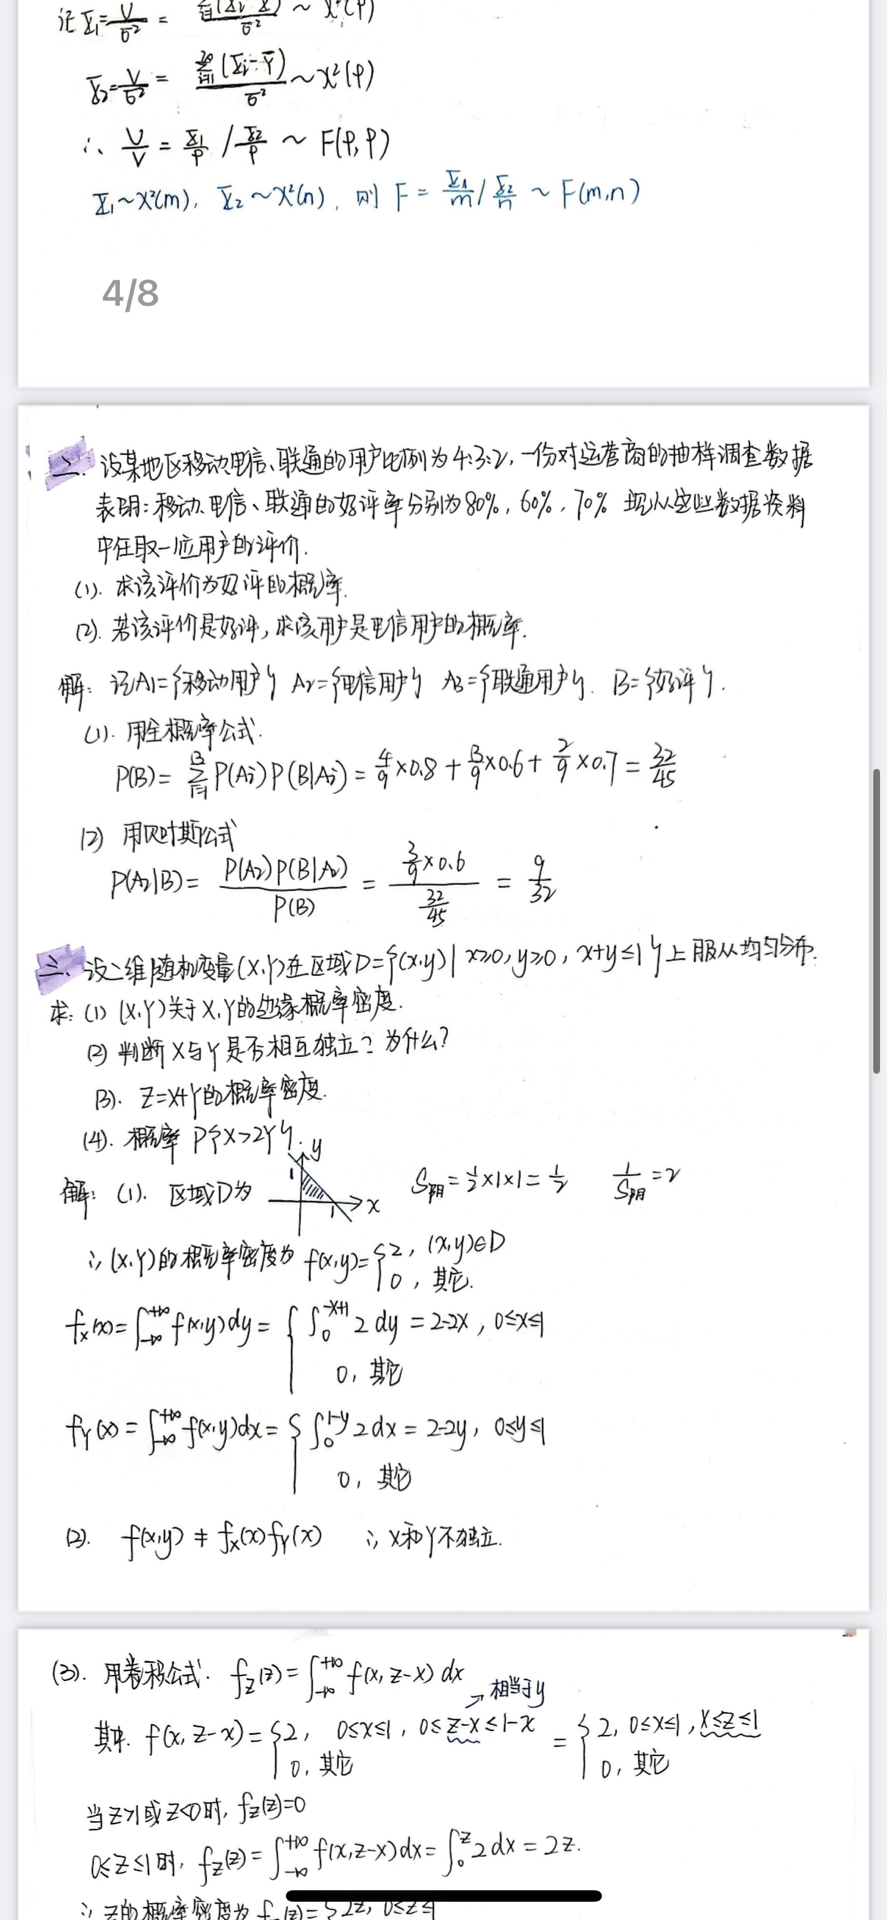 记 X₁=V/σ² = ~ χ²(9)
X₂=V/σ² = Σ(Yi-Ȳ)/σ² ~ χ²(9)
∴ U/V = X₁/9 / X₂/9 ~ F(9,9)
X₁~χ²(m), X₂~χ²(n), 则 F = X₁/m / X₂/n ~ F(m,n)
4/8
二、设某地区移动、电信、联通的用户比例为4:3:2,一份对运营商的抽样调查数据
表明:移动、电信、联通的好评率分别为80%,60%,70% 现从这些数据资料
中任取一位用户的评价.
(1). 求该评价为好评的概率.
(2). 若该评价是好评,求该用户是电信用户的概率.
解: 记A₁={移动用户} A₂={电信用户} A₃={联通用户}. B={好评}.
(1). 用全概率公式.
P(B)= Σ³ᵢ₌₁ P(Ai)P(B|Ai) = 4/9×0.8 + 3/9×0.6 + 2/9×0.7 = 32/45
(2) 用贝叶斯公式
P(A₂|B)= P(A₂)P(B|A₂)/P(B) = (3/9×0.6)/(32/45) = 9/32
三、设二维随机变量(X,Y)在区域D={(x,y)| x≥0, y≥0, x+y≤1}上服从均匀分布.
求: (1) (X,Y)关于X,Y的边缘概率密度.
(2) 判断X与Y是否相互独立?为什么?
(3). Z=X+Y的概率密度.
(4). 概率 P{X>2Y}.
解: (1). 区域D为 1 y 1 x S阴=½×1×1=½ 1/S阴=2
∴ (X,Y)的概率密度为 f(x,y)={2, (x,y)∈D
0, 其它.
fx(x)=∫₋∞⁺∞ f(x,y)dy = { ∫₀⁻ˣ⁺¹ 2dy = 2-2x, 0≤x≤1
0, 其它
fY(x)=∫₋∞⁺∞ f(x,y)dx = { ∫₀¹⁻ʸ 2dx = 2-2y, 0≤y≤1
0, 其它
(2). f(x,y) ≠ fx(x)fY(x) ∴ X和Y不独立.
(3). 用卷积公式. fz(z)=∫₋∞⁺∞ f(x, z-x) dx
→ 相当于y
其中. f(x, z-x) = {2, 0≤x≤1, 0≤z-x≤1-x = {2, 0≤x≤1, x≤z≤1
0, 其它 0, 其它
当z>1或z<0时, fz(z)=0
0≤z≤1时, fz(z)=∫₋∞⁺∞ f(x,z-x)dx = ∫₀ᶻ 2dx = 2z.
∴ Z的概率密度为 f (z)={2z, 0≤z≤1